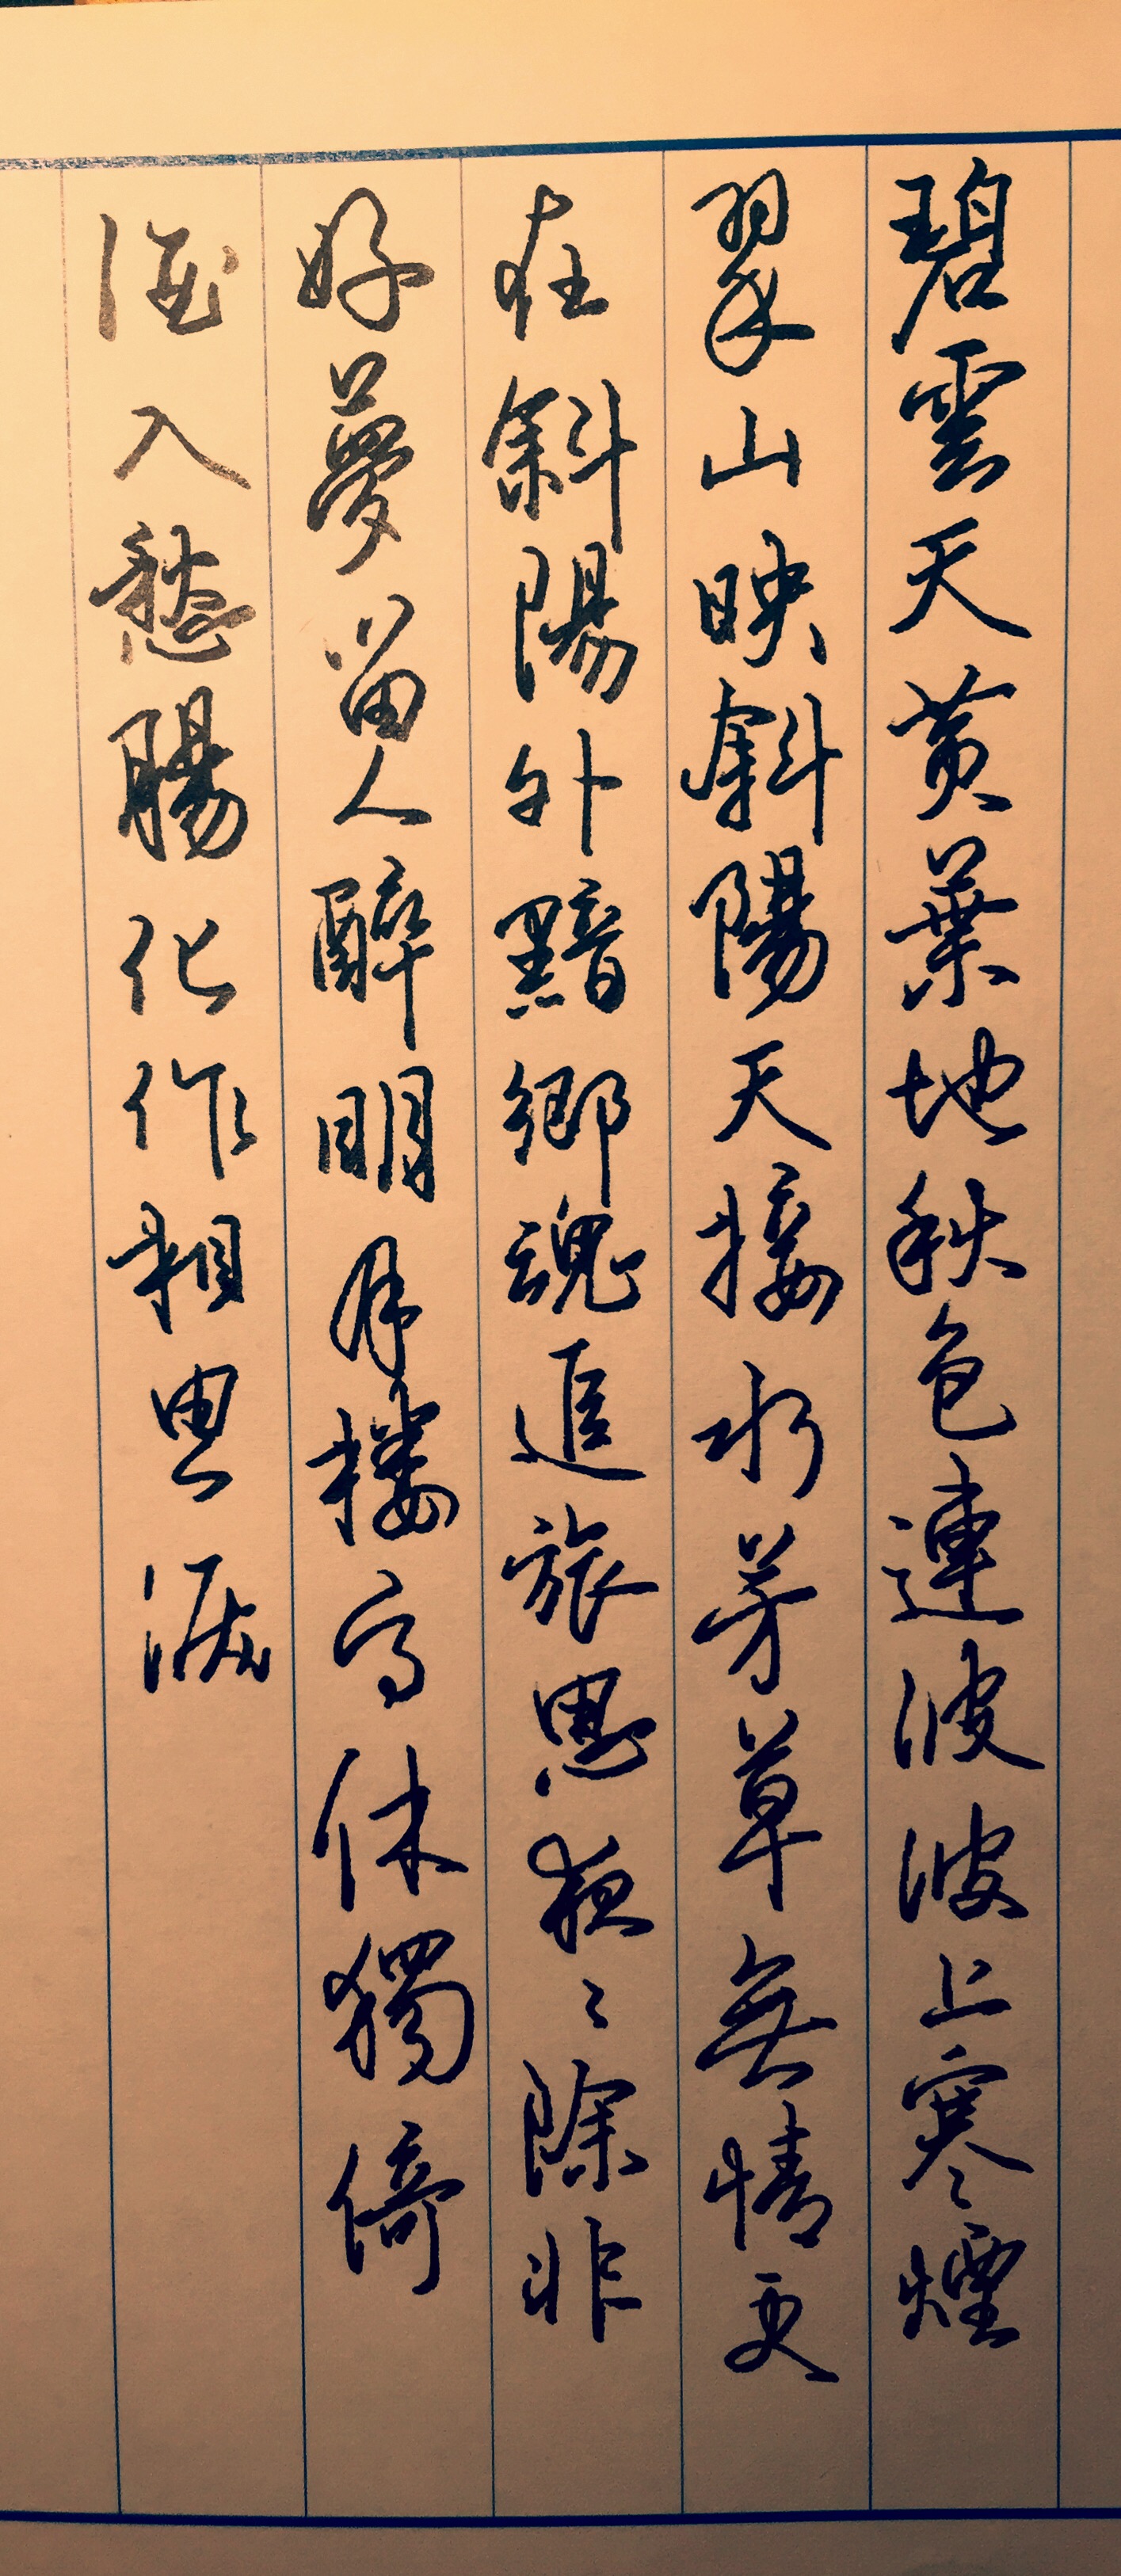 碧雲天黃葉地秋色連波波上寒煙
翠山映斜陽天接水芳草無情更
在斜陽外黯鄉魂追旅思夜〻除非
好夢留人醉明月樓高休獨倚
酒入愁腸化作相思淚